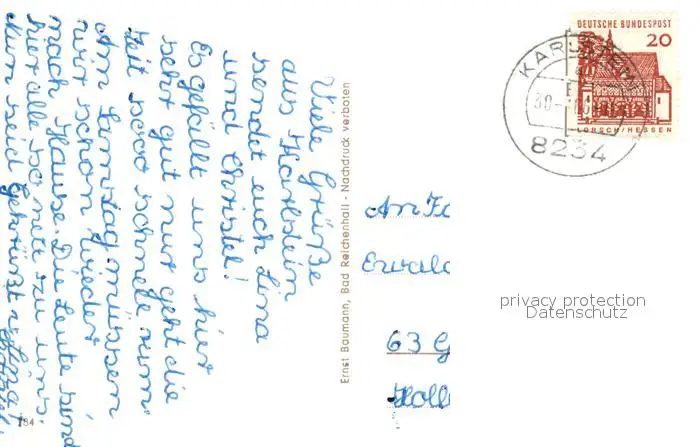 Viele Grüße
aus Karlstein
sendet euch Lina
und Christel!
Es gefällt uns hier
sehr gut nur geht die
Zeit sooo schnell rum
Am Samstag müssen
wir schon wieder
nach Hause. Die Leute sind
hier alle so nett zu uns.
Nun seid gegrüßt v. Lina
Ernst Baumann, Bad Reichenhall - Nachdruck verboten
184
DEUTSCHE BUNDESPOST
20
LORSCH/HESSEN
8234
An Fa
Ewald
63 G
Holl
privacy protection
Datenschutz